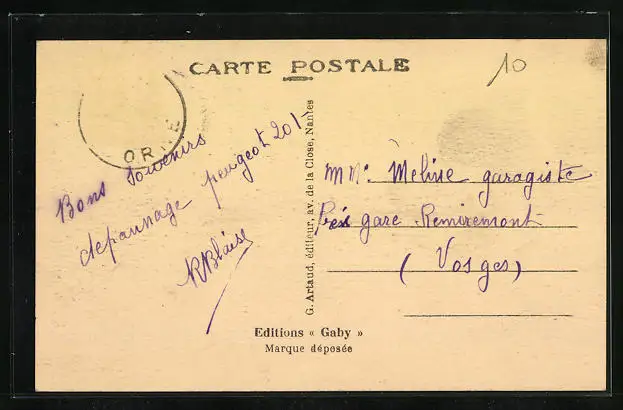 CARTE POSTALE
10
ORNE
Bons Souvenirs
depannage peugeot 201
RBlaise
G. Artaud, éditeur, av. de la Close, Nantes
Méline garagiste
gare Remiremont
(Vosges)
Editions « Gaby »
Marque déposée